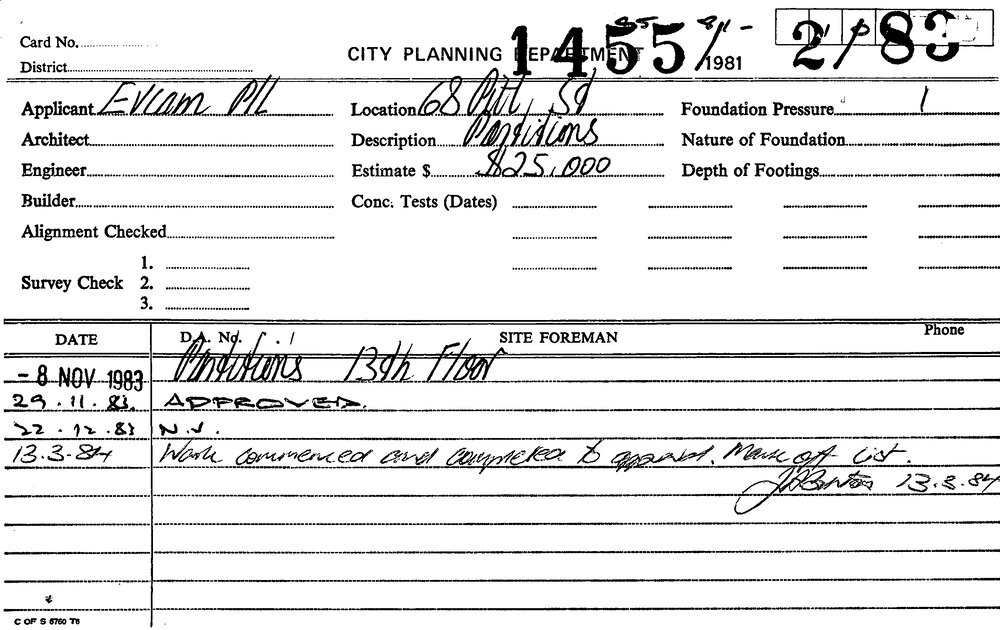 Card No.
District
CITY PLANNING DEPARTMENT
1455/ 83
1981
Applicant Evcam P/L Location 68 Pitt St Foundation Pressure
Architect Description Partitions Nature of Foundation
Engineer Estimate $ $25,000 Depth of Footings
Builder Conc. Tests (Dates)
Alignment Checked
1.
Survey Check 2.
3.
DATE D.A. No. SITE FOREMAN Phone
-8 NOV 1983 Partitions 13th Floor
29.11.83. APPROVED.
22.12.83 N.S.
13.3.84 Work commenced and completed to approval. Mark off list.
13.3.84
C OF S 6760 T6